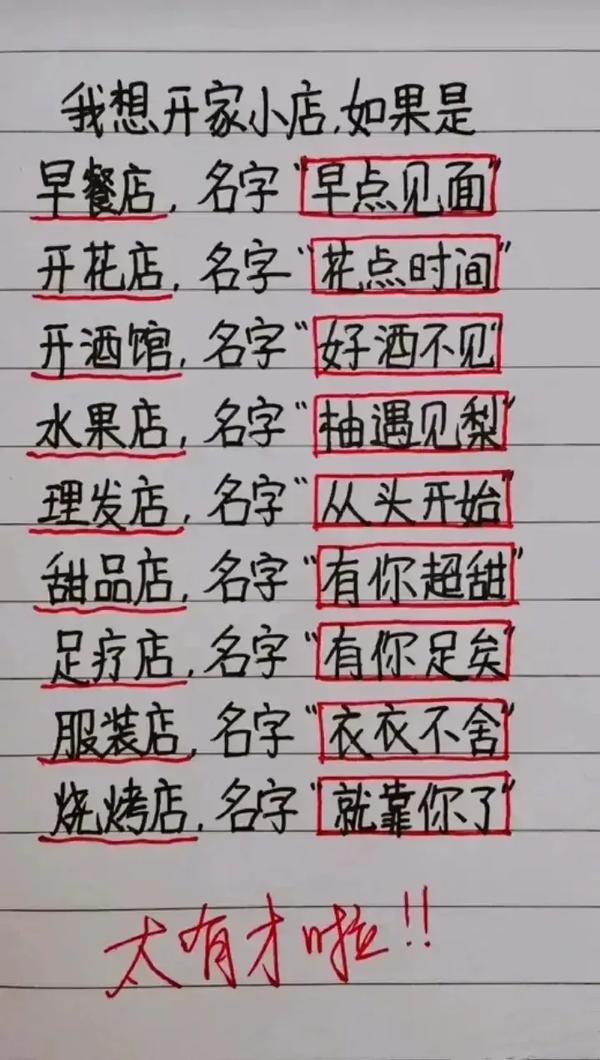 我想开家小店,如果是
早餐店,名字"早点见面"
开花店,名字"花点时间"
开酒馆,名字"好酒不见"
水果店,名字"柚遇见梨"
理发店,名字"从头开始"
甜品店,名字"有你超甜"
足疗店,名字"有你足矣"
服装店,名字"衣衣不舍"
烧烤店,名字"就靠你了"
太有才啦!!